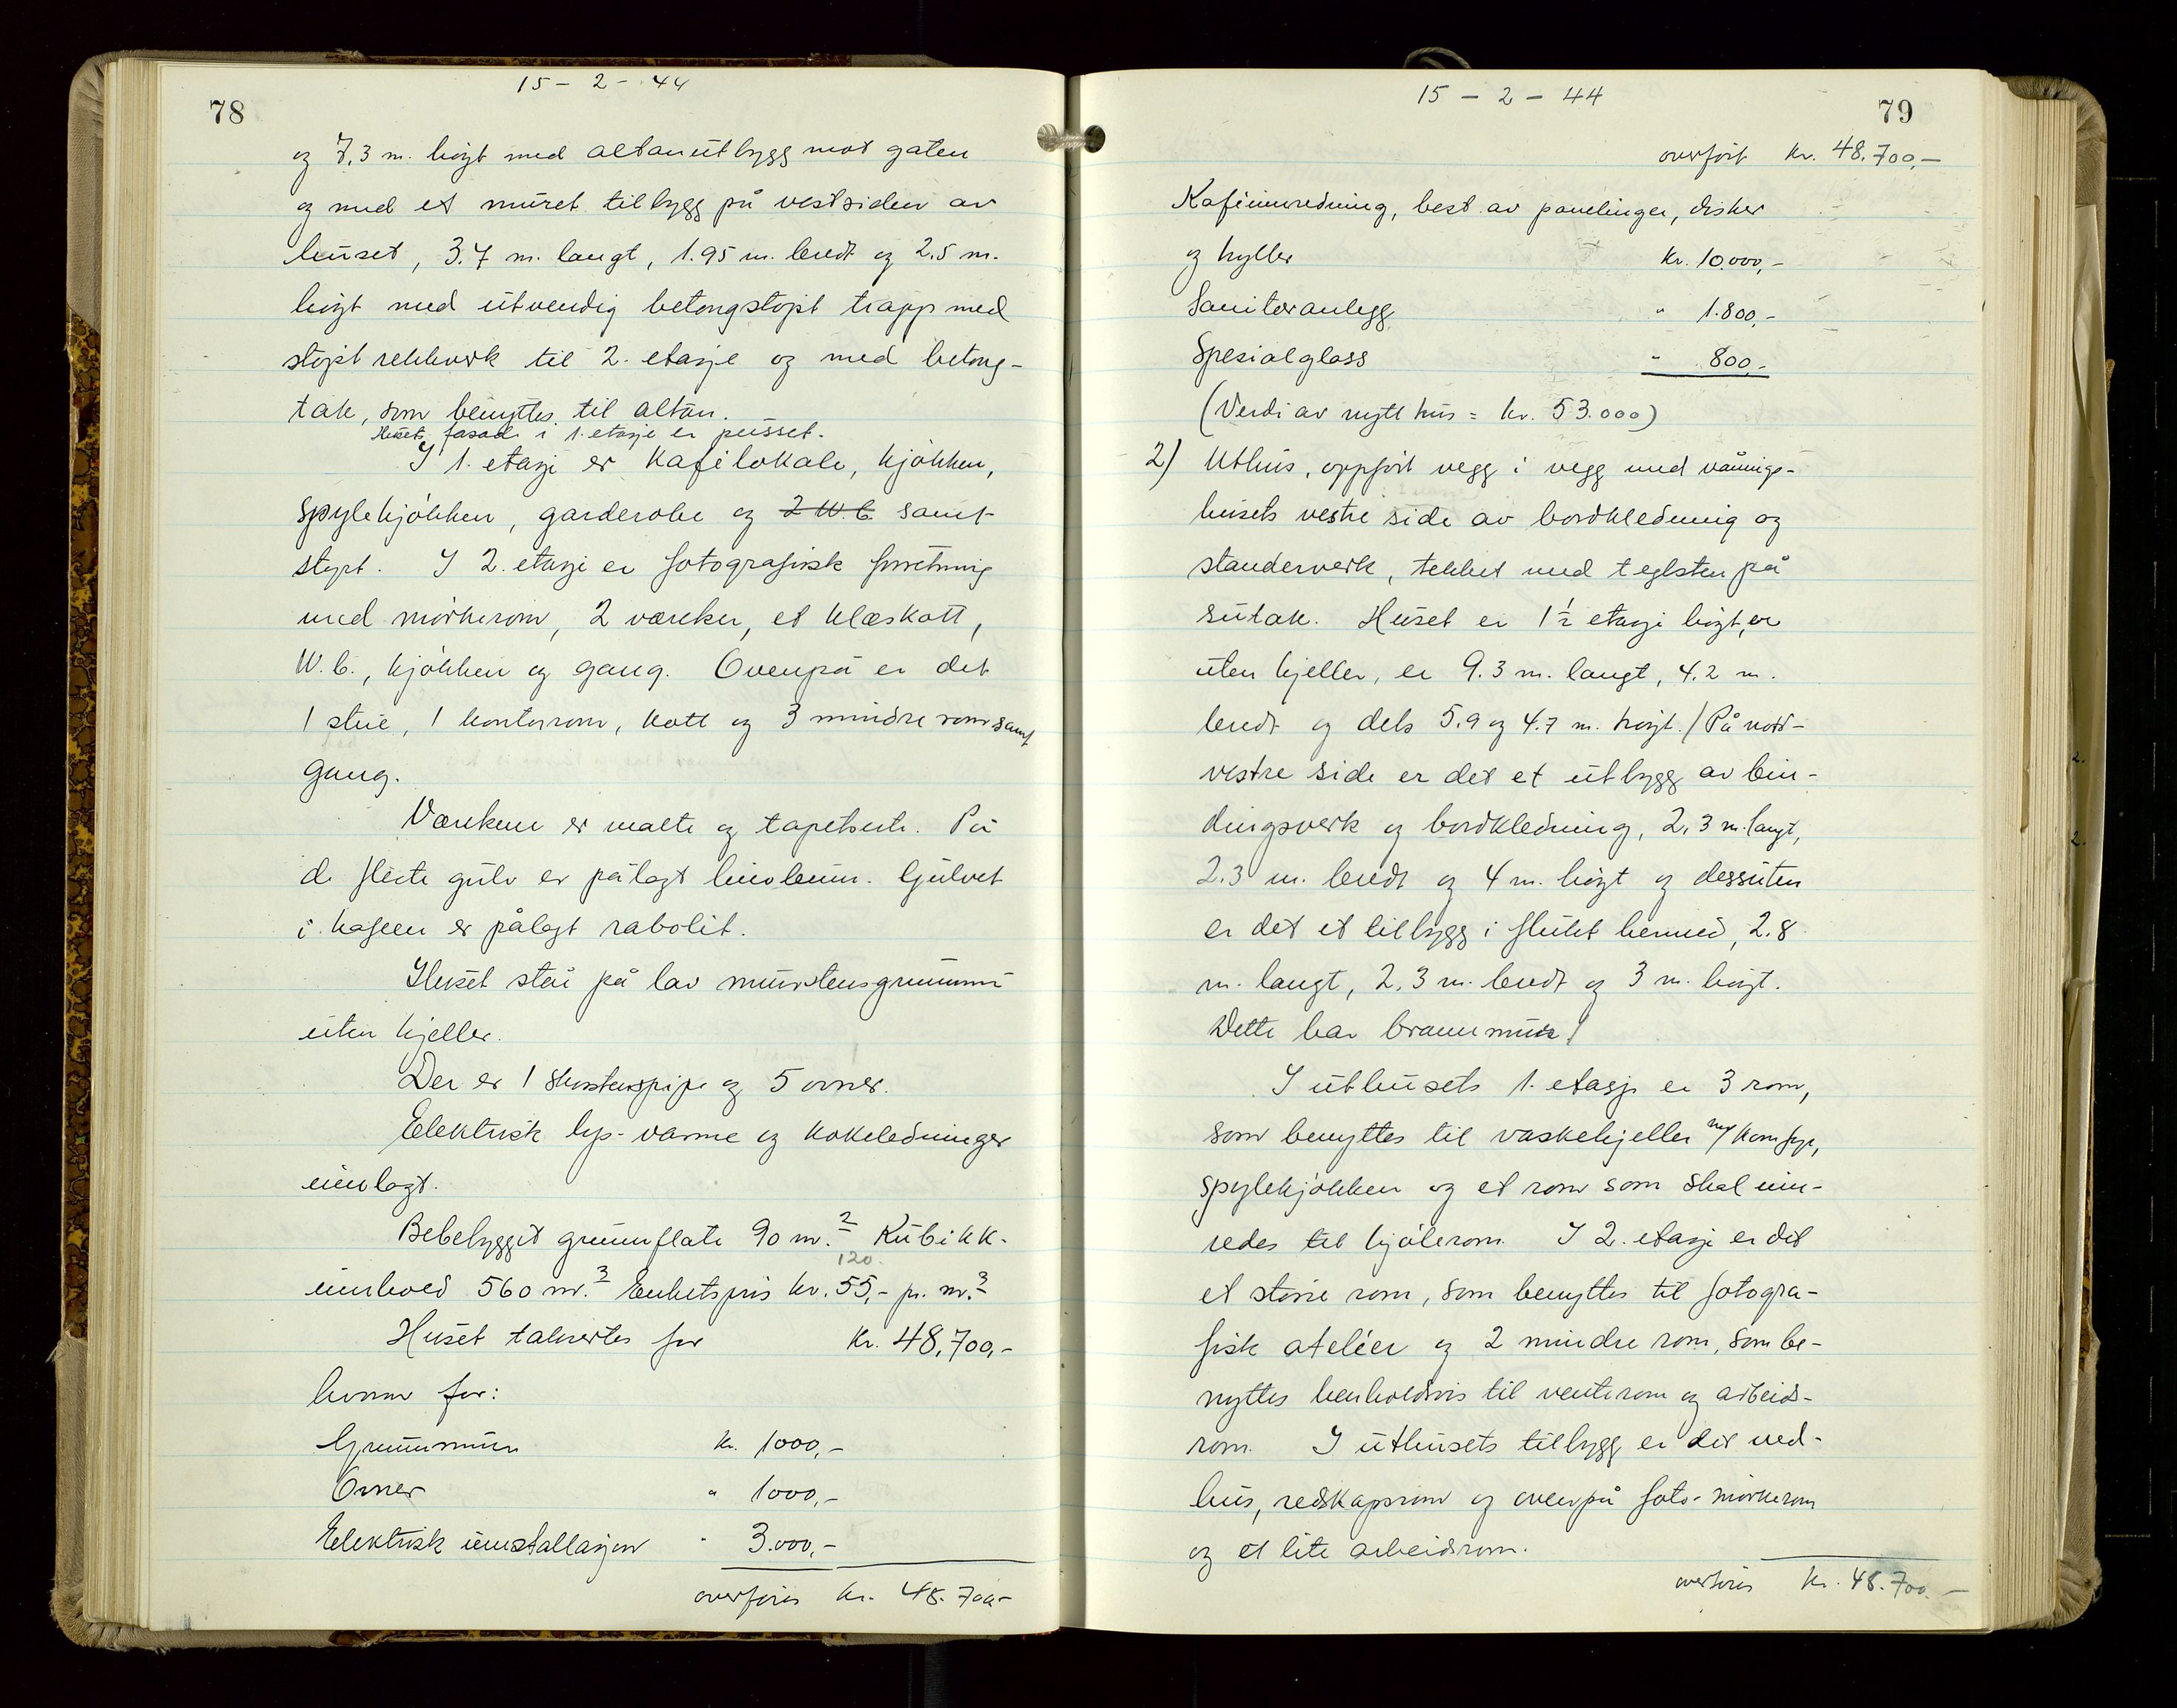 78
15 - 2 - 44
og 7,3 m. høyt med altanutbygg mot gaten
og med et muret tilbygg på vestsiden av
huset, 3.7 m. langt, 1.95 m. bredt og 2.5 m.
høyt med utvendig betongstøpt trapp med
støpt rekkverk til 2. etasje og med betong-
tak, som benyttes til altan.
Husets fasade i 1. etasje er pusset.
I 1. etasje er kafelokale, kjøkken,
spylekjøkken, garderobe og 2 W.C. samt
I 2. etasje er fotografisk forretning
med mørkerom, 2 værelser, et kleskott,
W.C., kjøkken og gang. Ovenpå er det
1 stue, 1 kontorrom, kott og 3 mindre rom samt
gang.
Værelsene er malte og tapetserte. På
de fleste gulv er pålagt linoleum. Gulvet
i kafeen er pålagt rabolit.
Huset står på lav murstensgrunnmur
uten kjeller.
Der er 1 skorstenspipe og 5 ovner.
Elektrisk lys- varme og kokeledninger
innlagt.
Bebebygget grunnflate 90 m.² Kubikk-
120
innhold 560 m.³ Enhetspris kr. 55,- pr. m.³
Huset takseres for kr. 48,700,-
hvorav for:
Grunnmur kr. 1000,-
Ovner " 1000,-
Elektrisk innstallasjon " 3.000,-
overføres kr. 48.700.-
79
15 - 2 - 44
overført kr. 48.700,-
Kafeinnredning, best. av panelinger, disker
og hyller kr. 10.000,-
Sanitæranlegg " 1.800,-
Spesialglass " 800,-
(Verdi av nytt hus = kr. 53.000)
2) Uthus, oppført vegg i vegg med vånings-
husets vestre side av bordkledning og
stenderverk, tekket med teglsten på
sutak. Huset er 1½ etasje høyt, er
uten kjeller, er 9.3 m. langt, 4.2 m.
bredt og dels 5.9 og 4.7 m. høyt. / På nord-
vestre side er det et utbygg av bin-
dingsverk og bordkledning, 2,3 m. langt,
2.3 m. bredt og 4 m. høyt og dessuten
er det et tilbygg i flukt hermed, 2.8
m. langt, 2,3 m. bredt og 3 m. høyt.
Dette har brannmur /
I uthusets 1. etasje er 3 rom,
som benyttes til vaskekjeller m/ komfyr,
spylekjøkken og et rom som skal inn-
redes til kjølerom. I 2. etasje er det
et større rom, som benyttes til fotogra-
fisk ateliér og 2 mindre rom, som be-
nyttes henholdsvis til venterom og arbeids-
rom. I uthusets tilbygg er det ved-
hus, redskapsrom og ovenpå foto-mørkerom
og et lite arbeidsrom.
overføres kr. 48.700.-